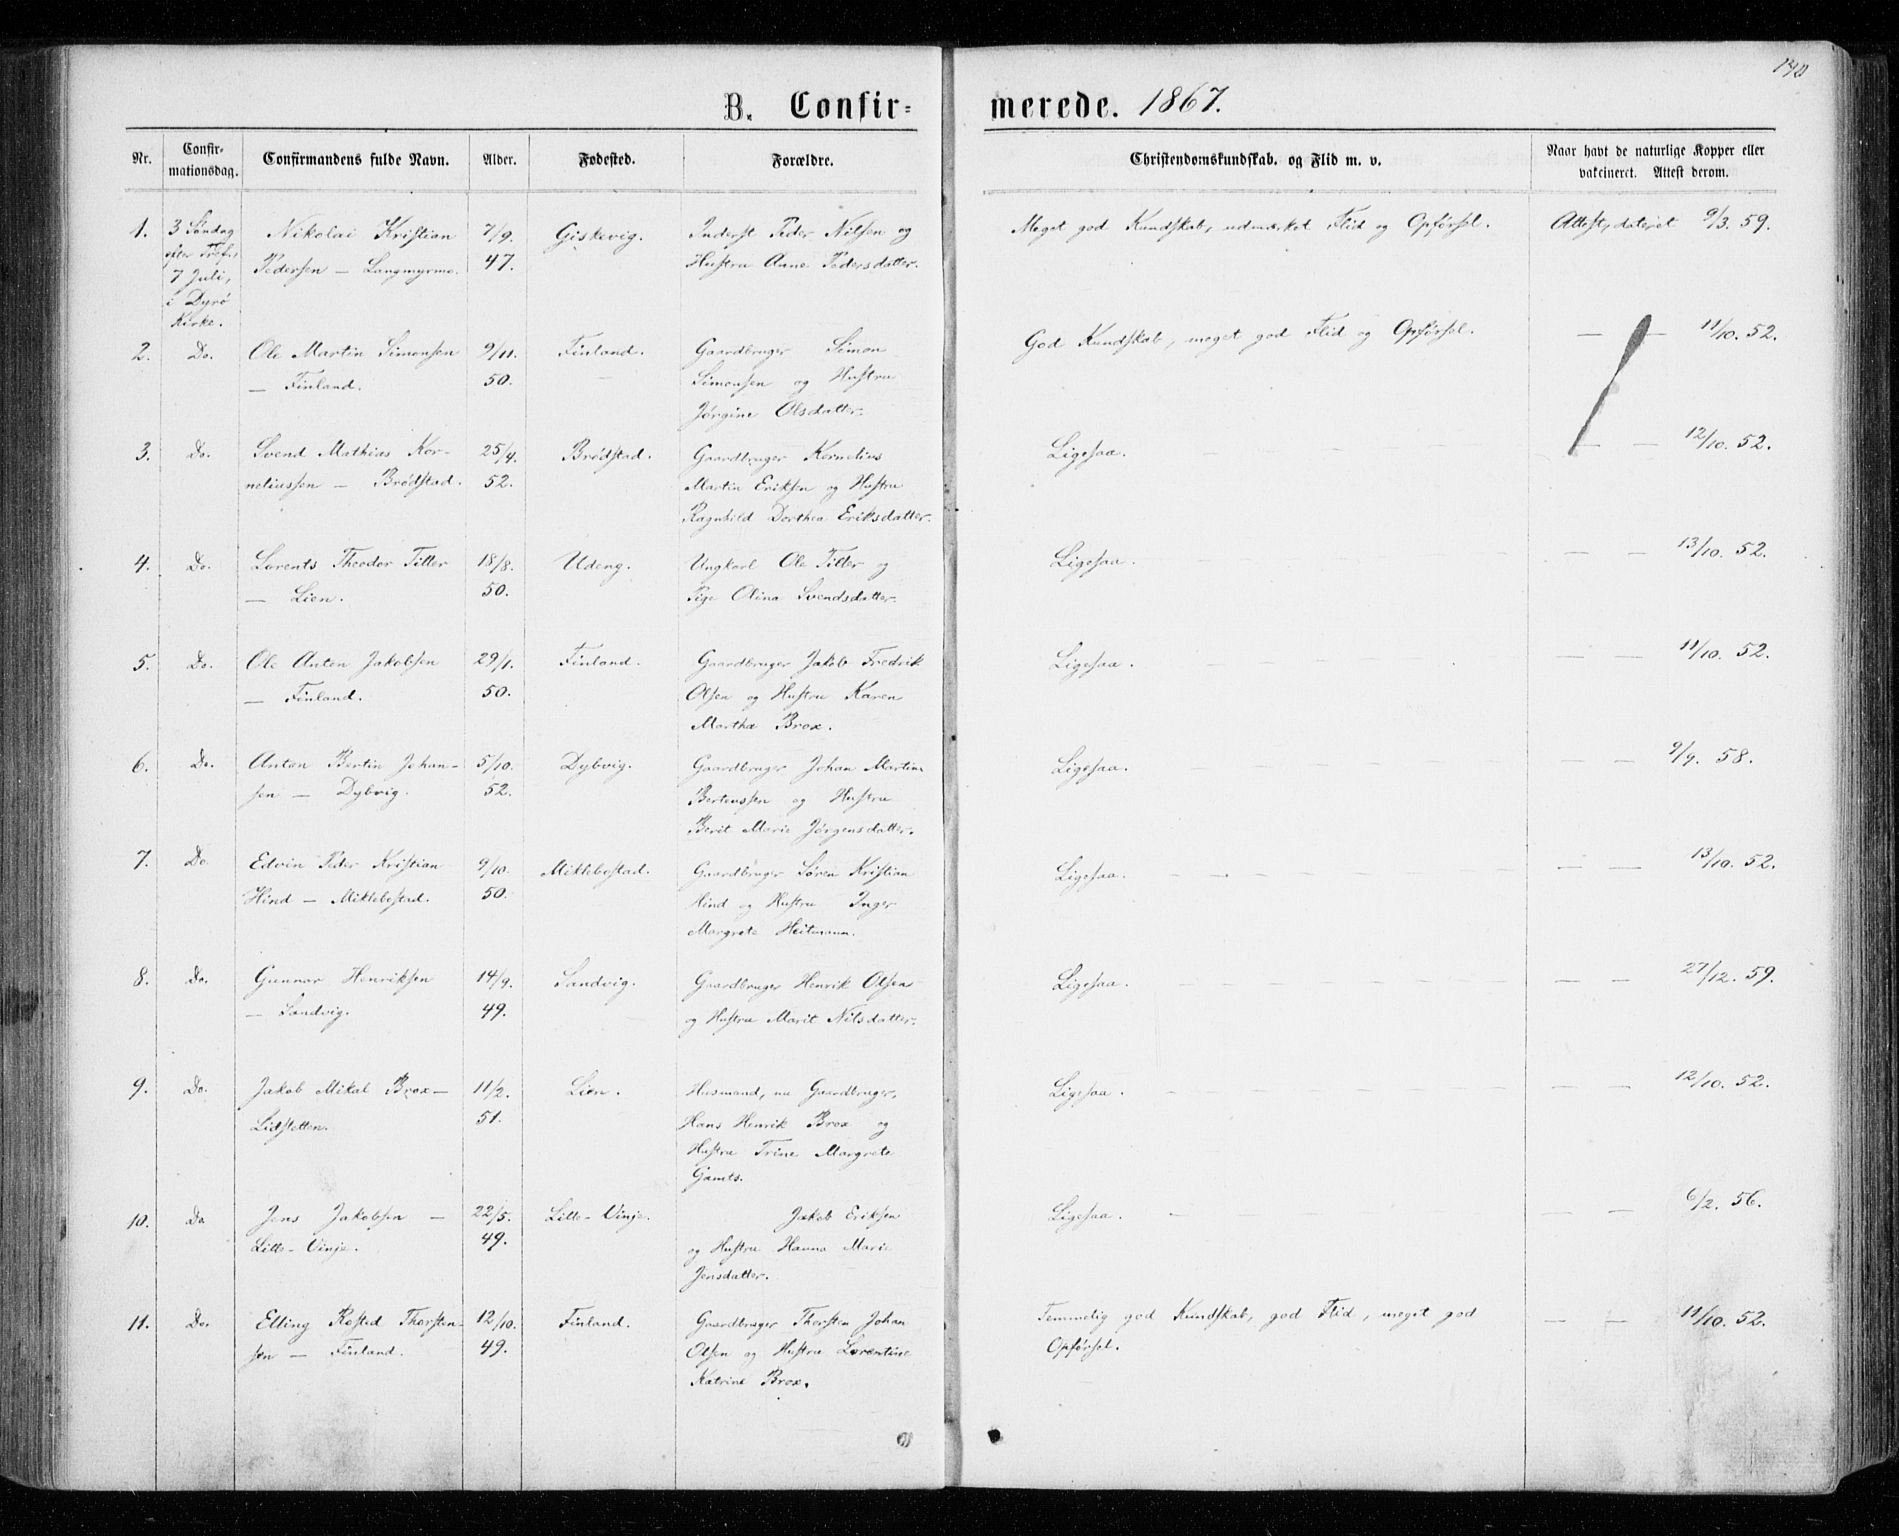 B. Confir-
merede. 1867.
Nr.
Confir-
mationsdag.
Confirmandens fulde Navn.
Alder.
Fødested.
Forældre.
Christendomskundskab, og Flid m. v.
Naar havt de naturlige Kopper eller
vakcineret. Attest derom.
1. 3 Søndag Nikolai Kristian 7/9. Giskevig. Inderst Peder Nilsen og Meget god Kundskab, udmærket Flid og Opførsel. Attest, dateret 9/3. 59.
efter Tref. Pedersen — Langmyrmo. 47. Hustru Anne Pedersdatter.
7 Juli,
i Dyrö
Kirke.
2. Do. Ole Martin Simonsen 9/11. Finland. Gaardbruger Simon God Kundskab, meget god Flid og Opførsel. — — 11/10. 52.
— Finland. 50. Simonsen og Hustru
Jörgine Olsdatter.
3. Do. Svend Mathias Kor- 25/4. Brödstad. Gaardbruger Kornelius Ligesaa. — — 12/10. 52.
neliussen — Brödstad. 52. Martin Eriksen og Hustru
Ragnhild Dorthea Eriksdatter.
4. Do. Lorents Theodor Tiller 18/8. Udeng. Ungkarl Ole Tiller og Ligesaa. — — 13/10. 52.
— Lien. 50. Pige Olina Svendsdatter.
5. Do. Ole Anton Jakobsen 29/1. Finland. Gaardbruger Jakob Fredrik Ligesaa. — — 11/10. 52.
— Finland. 50. Olsen og Hustru Karen
Martha Brox.
6. Do. Anton Bertin Johan- 5/10. Dybvig. Gaardbruger Johan Martin Ligesaa. — — 9/9. 58.
sen — Dybvig. 52. Berteussen og Hustru
Berit Marie Jörgensdatter.
7. Do. Edvin Peder Kristian 9/10. Miklebostad. Gaardbruger Sören Kristian Ligesaa. — — 13/10. 52.
Hind — Miklebostad. 50. Hind og Hustru Inger
Margrete Heitmann.
8. Do. Gunnar Henriksen 14/9. Sandvig. Gaardbruger Henrik Olsen Ligesaa. — — 27/12. 59.
— Sandvig. 49. og Hustru Marit Nilsdatter.
9. Do. Jakob Mikal Brox — 11/2. Lien. Husmand, nu Gaardbruger, Ligesaa. — — 12/10. 52.
Lidstetten. 51. Hans Henrik Brox og
Hustru Trine Margrete
Gamts.
10. Do Jens Jakobsen — 22/5. Lille-Vinje. Jakob Eriksen Ligesaa. — — 6/2. 56.
Lille-Vinje. 49. og Hustru Hanna Marie
Jensdatter.
11. Do. Elling Rosted Thorsten- 12/10. Finland. Gaardbruger Thorsten Johan Temmelig god Kundskab, god Flid, meget god — — 11/10. 52.
sen — Finland. 49. Olsen og Hustru Lorentine Opførsel.
Katrine Brox.